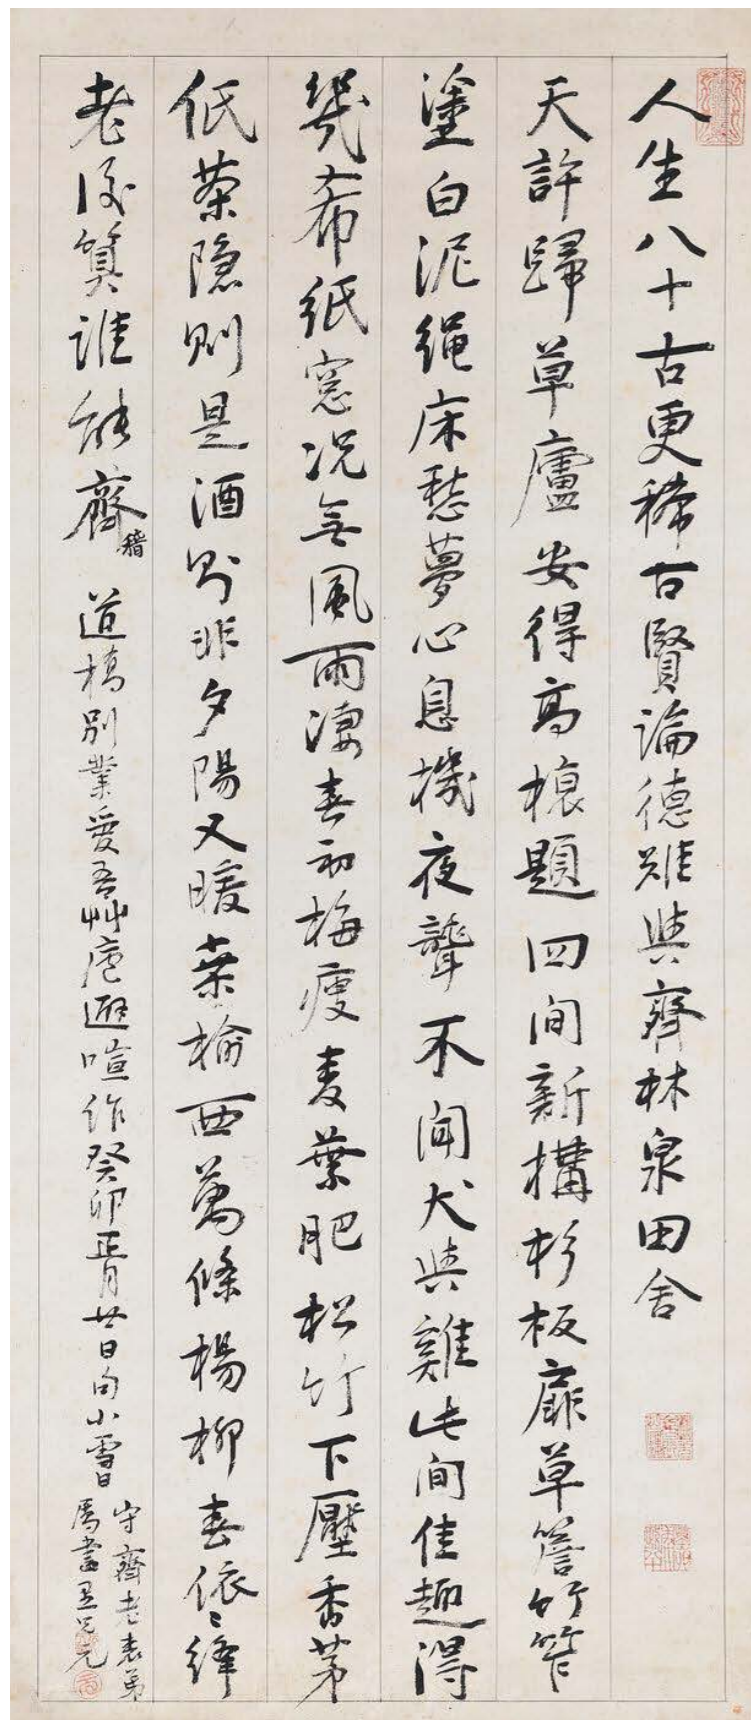 人生八十古更稀古賢論德難與齊林泉田舍
天許歸草廬安得高榱題四間新構杉板扉草簷竹笮
塗白泥繩床愁夢心息機夜聾不聞犬與雞此間佳趣得
幾希紙窓況無風雨凄春初梅瘦麦葉肥松竹下壓香茅
低茶隐則是酒則非夕陽又暖桑榆西萬條楊柳春依〻絳
老後算誰能齊稽 道橋別業愛吾艸廬避喧作癸卯正月廿日由小雪日
守齋老表弟
屬書